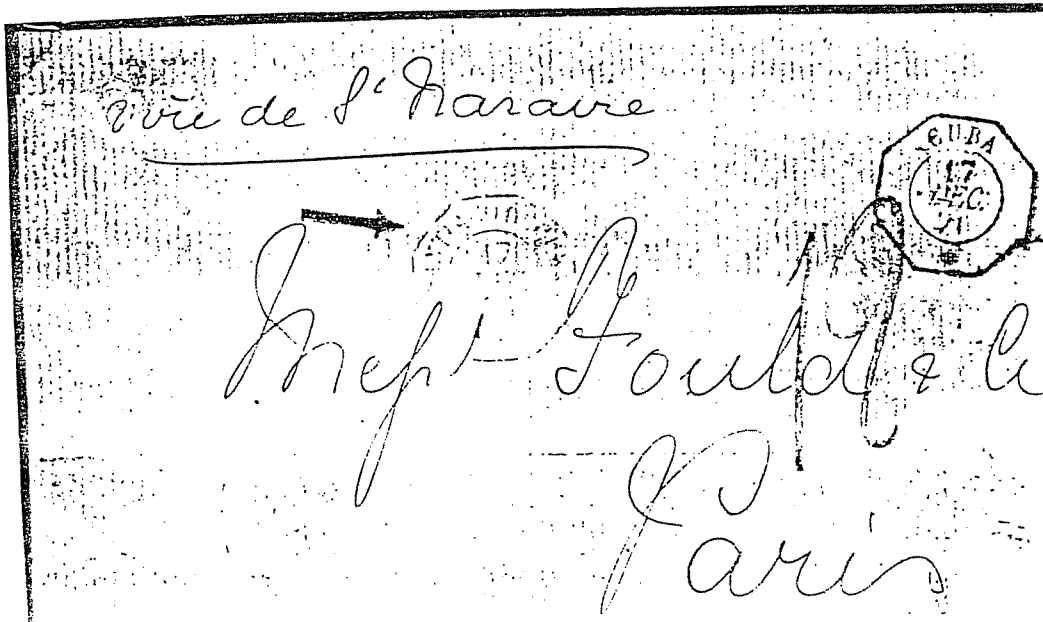 voie de St Nazaire
CUBA
17
DEC.
71
18
Messrs Fould & Co
Paris